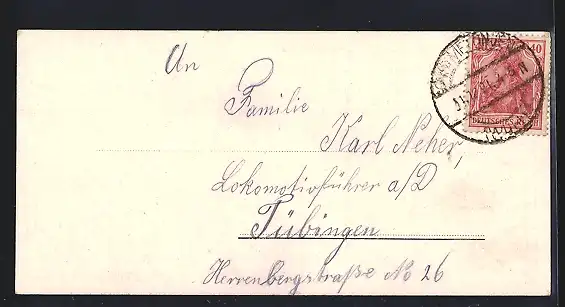 An
Familie
Karl Neher,
Lokomotivführer a/D
Tübingen
Herrenbergstraße No 26
40